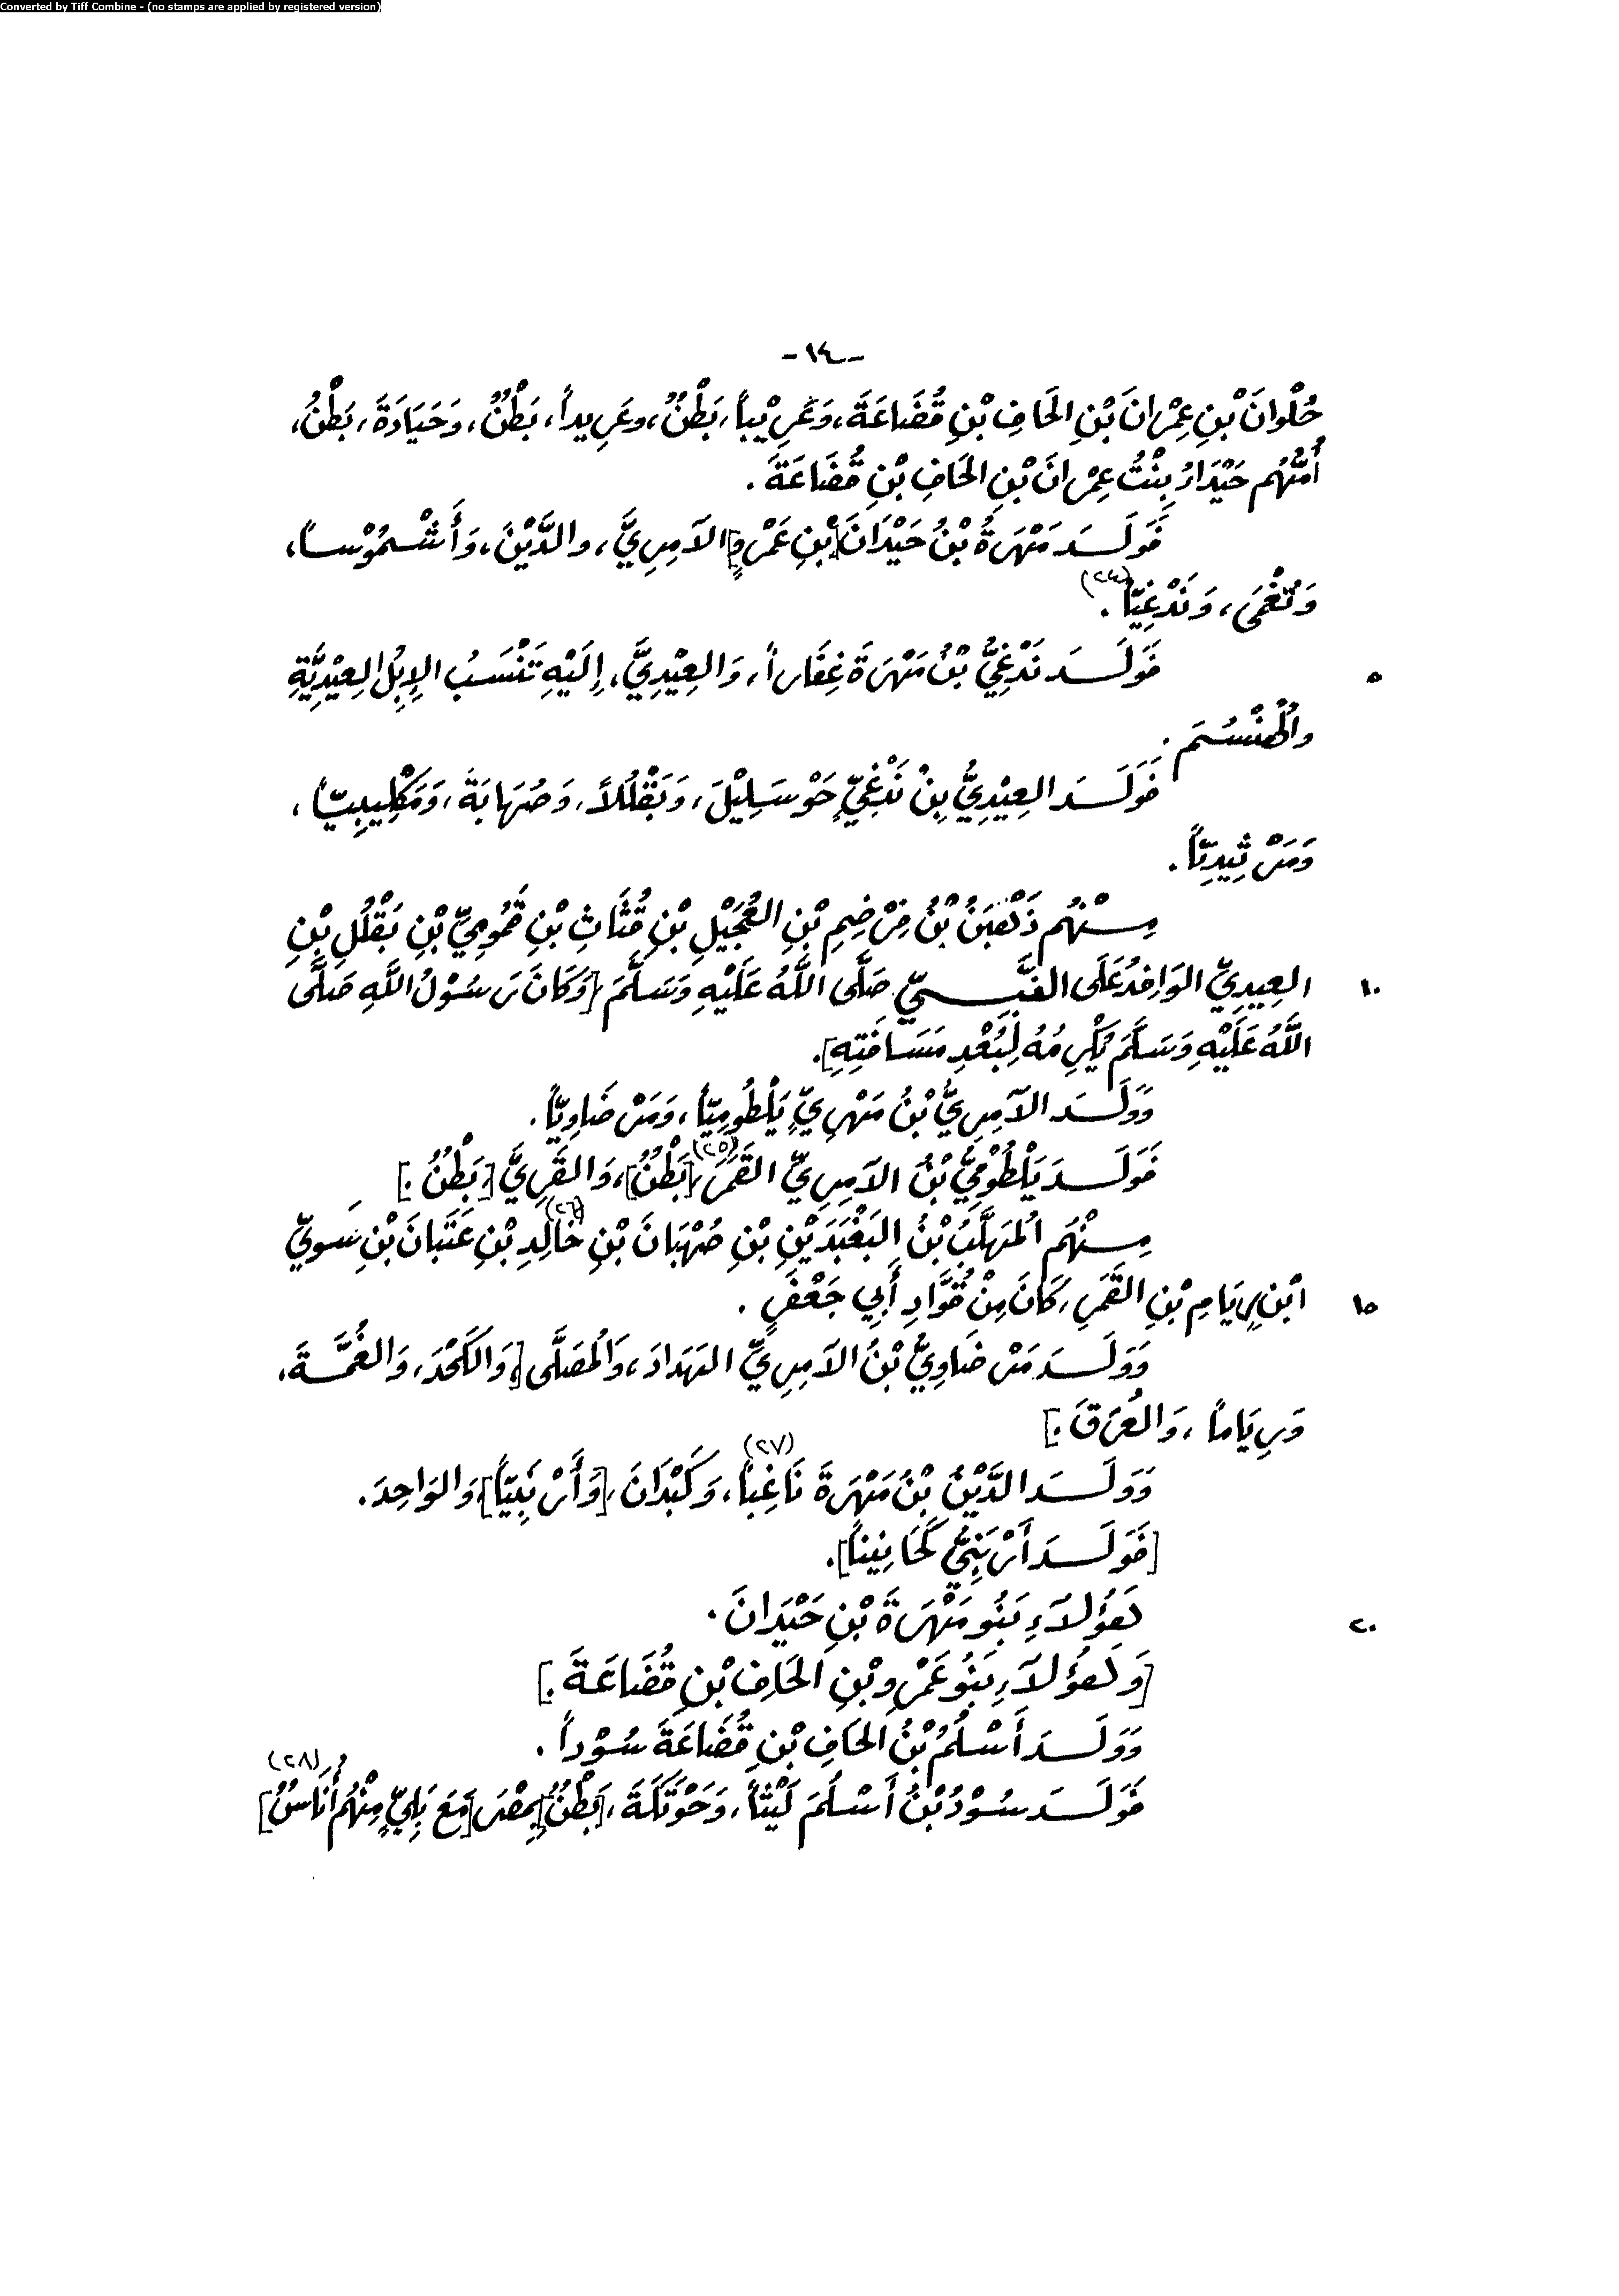 Converted by Tiff Combine - (no stamps are applied by registered version)
-١٤-
حُلْوانَ بْنِ عِمْرانَ بْنِ الحَافِ بْنِ قُضَاعَةَ، وَعَرِيْباً، بَطْنٌ، وعَرِيداً، بَطْنٌ، وَحَيَادَةَ، بَطْنُ،
أُمُّهُم حَيْدَارُ بِنْتُ عِمْرانَ بْنِ الحَافِ بْنِ قُضَاعَةَ.
فَوَلَـدَ مَهْرَةُ بْنُ حَيْدَانَ [بْنِ عَمْرٍو] الآمِرِيَّ، والدَّيْنَ، وَأَشْـمُوْسـاً،
وَتُغْمَى، وَنَدْغِيّاً (٢٤).
٥ فَوَلَـدَ نَدْغِيُّ بْنُ مَهْرَةَ غِفَاراً، وَالعِيْدِيَّ، إِلَيْهِ تَنْسَبُ الإِبِلُ العِيْدِيَّةِ
والهُنْسُمَ.
فَوَلَـدَ العِيْدِيُّ بِنْ نَدْغِيٍّ حَوْسَلِيْلَ، وَبَقْلُلاً، وَصُهَابَةَ، وَمَكْلِيبِيّاً،
وَمَرْثِيدِيّاً.
مِـنْهُم ذَهْبَنُ بْنُ قِرْضِمِ بْنِ العُجَيْلِ بْنِ قُثَاثِ بْنِ قَمُومِيِّ بْنِ بَقْلُلِ بْنِ
١٠ العِيدِيِّ الوَافِدُ عَلَى النَّبِـيِّ صَلَّى اللَّهُ عَلَيْهِ وَسَلَّمَ [وَكَانَ رَسُوْلُ اللَّهِ صَلَّى
اللَّهُ عَلَيْهِ وَسَلَّمَ يُكْرِمُهُ لِبُعْدِ مَسَافَتِهِ].
وَوَلَـدَ الآمِرِيُّ بْنُ مَهْرِيٍّ يَلْطُومِيّاً، وَمَرْضَاوِيّاً.
فَوَلَـدَ يَلْطُوْمِيُّ بْنُ الآمِرِيِّ القَمَرَ (٢٥) [بَطْنٌ]، وَالقَرِيَّ [بَطْنُ.]
مِـنْهَم المُهَلَّبُ بْنُ البَغْبَدَيْنِ بْنِ صُهْبَانَ بْنِ خَالِدِ (٢٦) بْنِ عَتَبَانَ بْنِ سَوِيِّ
١٥ ابْنِ رِيَامِ بْنِ القَمَرِ، كَانَ مِنْ قُوَّادِ أَبِي جَعْفَرٍ.
وَوَلَـدَ مَرْضَاوِيُّ بْنُ الآمِرِيِّ الهَدَادَ، وَالمُصَلَّى [وَالكَحْدَ، وَالغُمَّـةَ،
وَرِيَاماً، وَالعُرَقَ.]
وَوَلَـدَ الدَّيْنُ بْنُ مَهْرَةَ نَاغِباً (٢٧)، وَكَبْدَانَ، [وَأَرْنَبِيّاً]، وَالوَاحِدَ.
[فَوَلَـدَ أَرْنَبِيُّ كَحَانِيناً].
٢٠ هَؤُلآءِ بَنُو مَهْرَةَ بْنِ حَيْدَانَ.
[وَهَؤُلآءِ بَنُو عَمْرِو بْنِ الحَافِ بْنِ قُضَاعَةَ.]
وَوَلَـدَ أَسْلُمُ بْنُ الحَافِ بْنِ قُضَاعَةَ سُوْداً.
فَوَلَـدَ سُوْدُ بْنُ أَسْلُمَ لَيْثاً، وَحَوْتَكَةَ، [بَطْنٌ] بِمِصْرَ [مَعَ بَلِيٍّ مِنْهُم أُنَاسٌ (٢٨)]